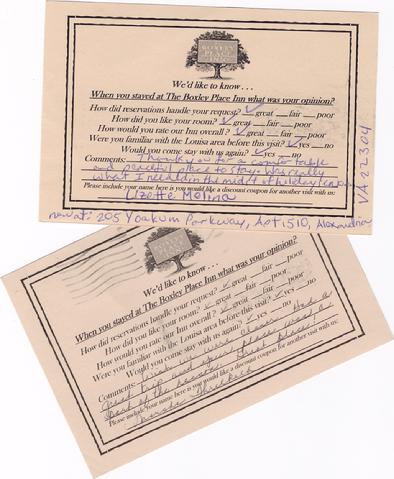 BOXLEY
PLACE
INN
We'd like to know . . .
When you stayed at The Boxley Place Inn what was your opinion?
How did reservations handle your request? ✓ great __ fair __ poor
How did you like your room? ✓ great __ fair __ poor
How would you rate our Inn overall? ✓ great __ fair __ poor
Were you familiar with the Louisa area before this visit? ✓ yes __ no
Would you come stay with us again? ✓ yes __ no
Comments: Thank you for a comfortable
and peaceful place to stay. Was really
what I needed in the midst of holiday
Please include your name here is you would like a discount coupon for another visit with us:
Lizette Molina
new at: 205 Yoakum Parkway, Apt. 510, Alexandria
VA 22304
We'd like to know . . .
When you stayed at The Boxley Place Inn what was your opinion?
How did reservations handle your request? ✓ great __ fair __ poor
How did you like your room? ✓ great __ fair __ poor
How would you rate our Inn overall? ✓ great __ fair __ poor
Were you familiar with the Louisa area before this visit? ✓ yes __ no
Would you come stay with us again? ✓ yes __ no
Comments: Wish we were closer. Had a
great trip and your place was a
part of the
Great place!
Please include your name here is you would like a discount coupon for another visit with us: